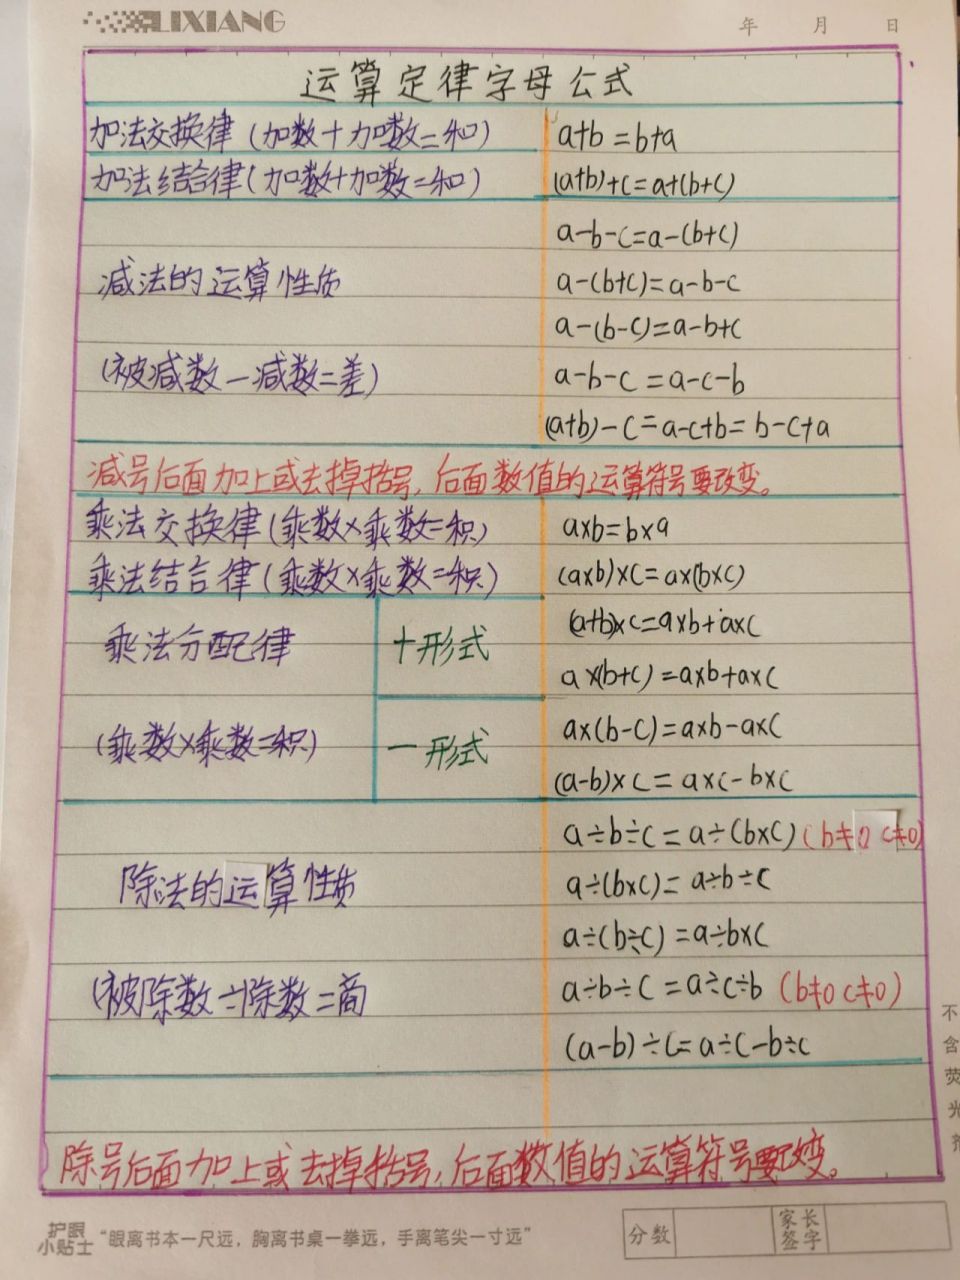 LIXIANG
年 月 日
运算定律字母公式
加法交换律(加数+加数=和) a+b=b+a
加法结合律(加数+加数=和) (a+b)+c=a+(b+c)
a-b-c=a-(b+c)
减法的运算性质 a-(b+c)=a-b-c
a-(b-c)=a-b+c
(被减数-减数=差) a-b-c=a-c-b
(a+b)-c=a-c+b=b-c+a
减号后面加上或去掉括号,后面数值的运算符号要改变。
乘法交换律(乘数×乘数=积) a×b=b×a
乘法结合律(乘数×乘数=积) (a×b)×c=a×(b×c)
(a+b)×c=a×b+a×c
乘法分配律 +形式
a×(b+c)=a×b+a×c
a×(b-c)=a×b-a×c
(乘数×乘数=积) -形式
(a-b)×c=a×c-b×c
a÷b÷c=a÷(b×c)(b≠0 c≠0)
除法的运算性质 a÷(b×c)=a÷b÷c
a÷(b÷c)=a÷b×c
(被除数÷除数=商 a÷b÷c=a÷c÷b (b≠0 c≠0)
(a-b)÷c=a÷c-b÷c
除号后面加上或去掉括号,后面数值的运算符号要改变。
不含荧光
护眼小贴士 “眼离书本一尺远,胸离书桌一拳远,手离笔尖一寸远”
分数 家长签字